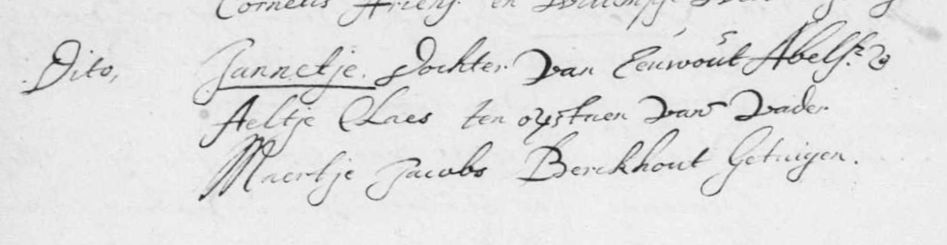 Cornelis Ariens. en
Dito, Jannetje. dochter van Eeuwout Abels. &
Aeltje Claes ten oijstaen van Vader
Maertje Jacobs Berckhout Getuigen.